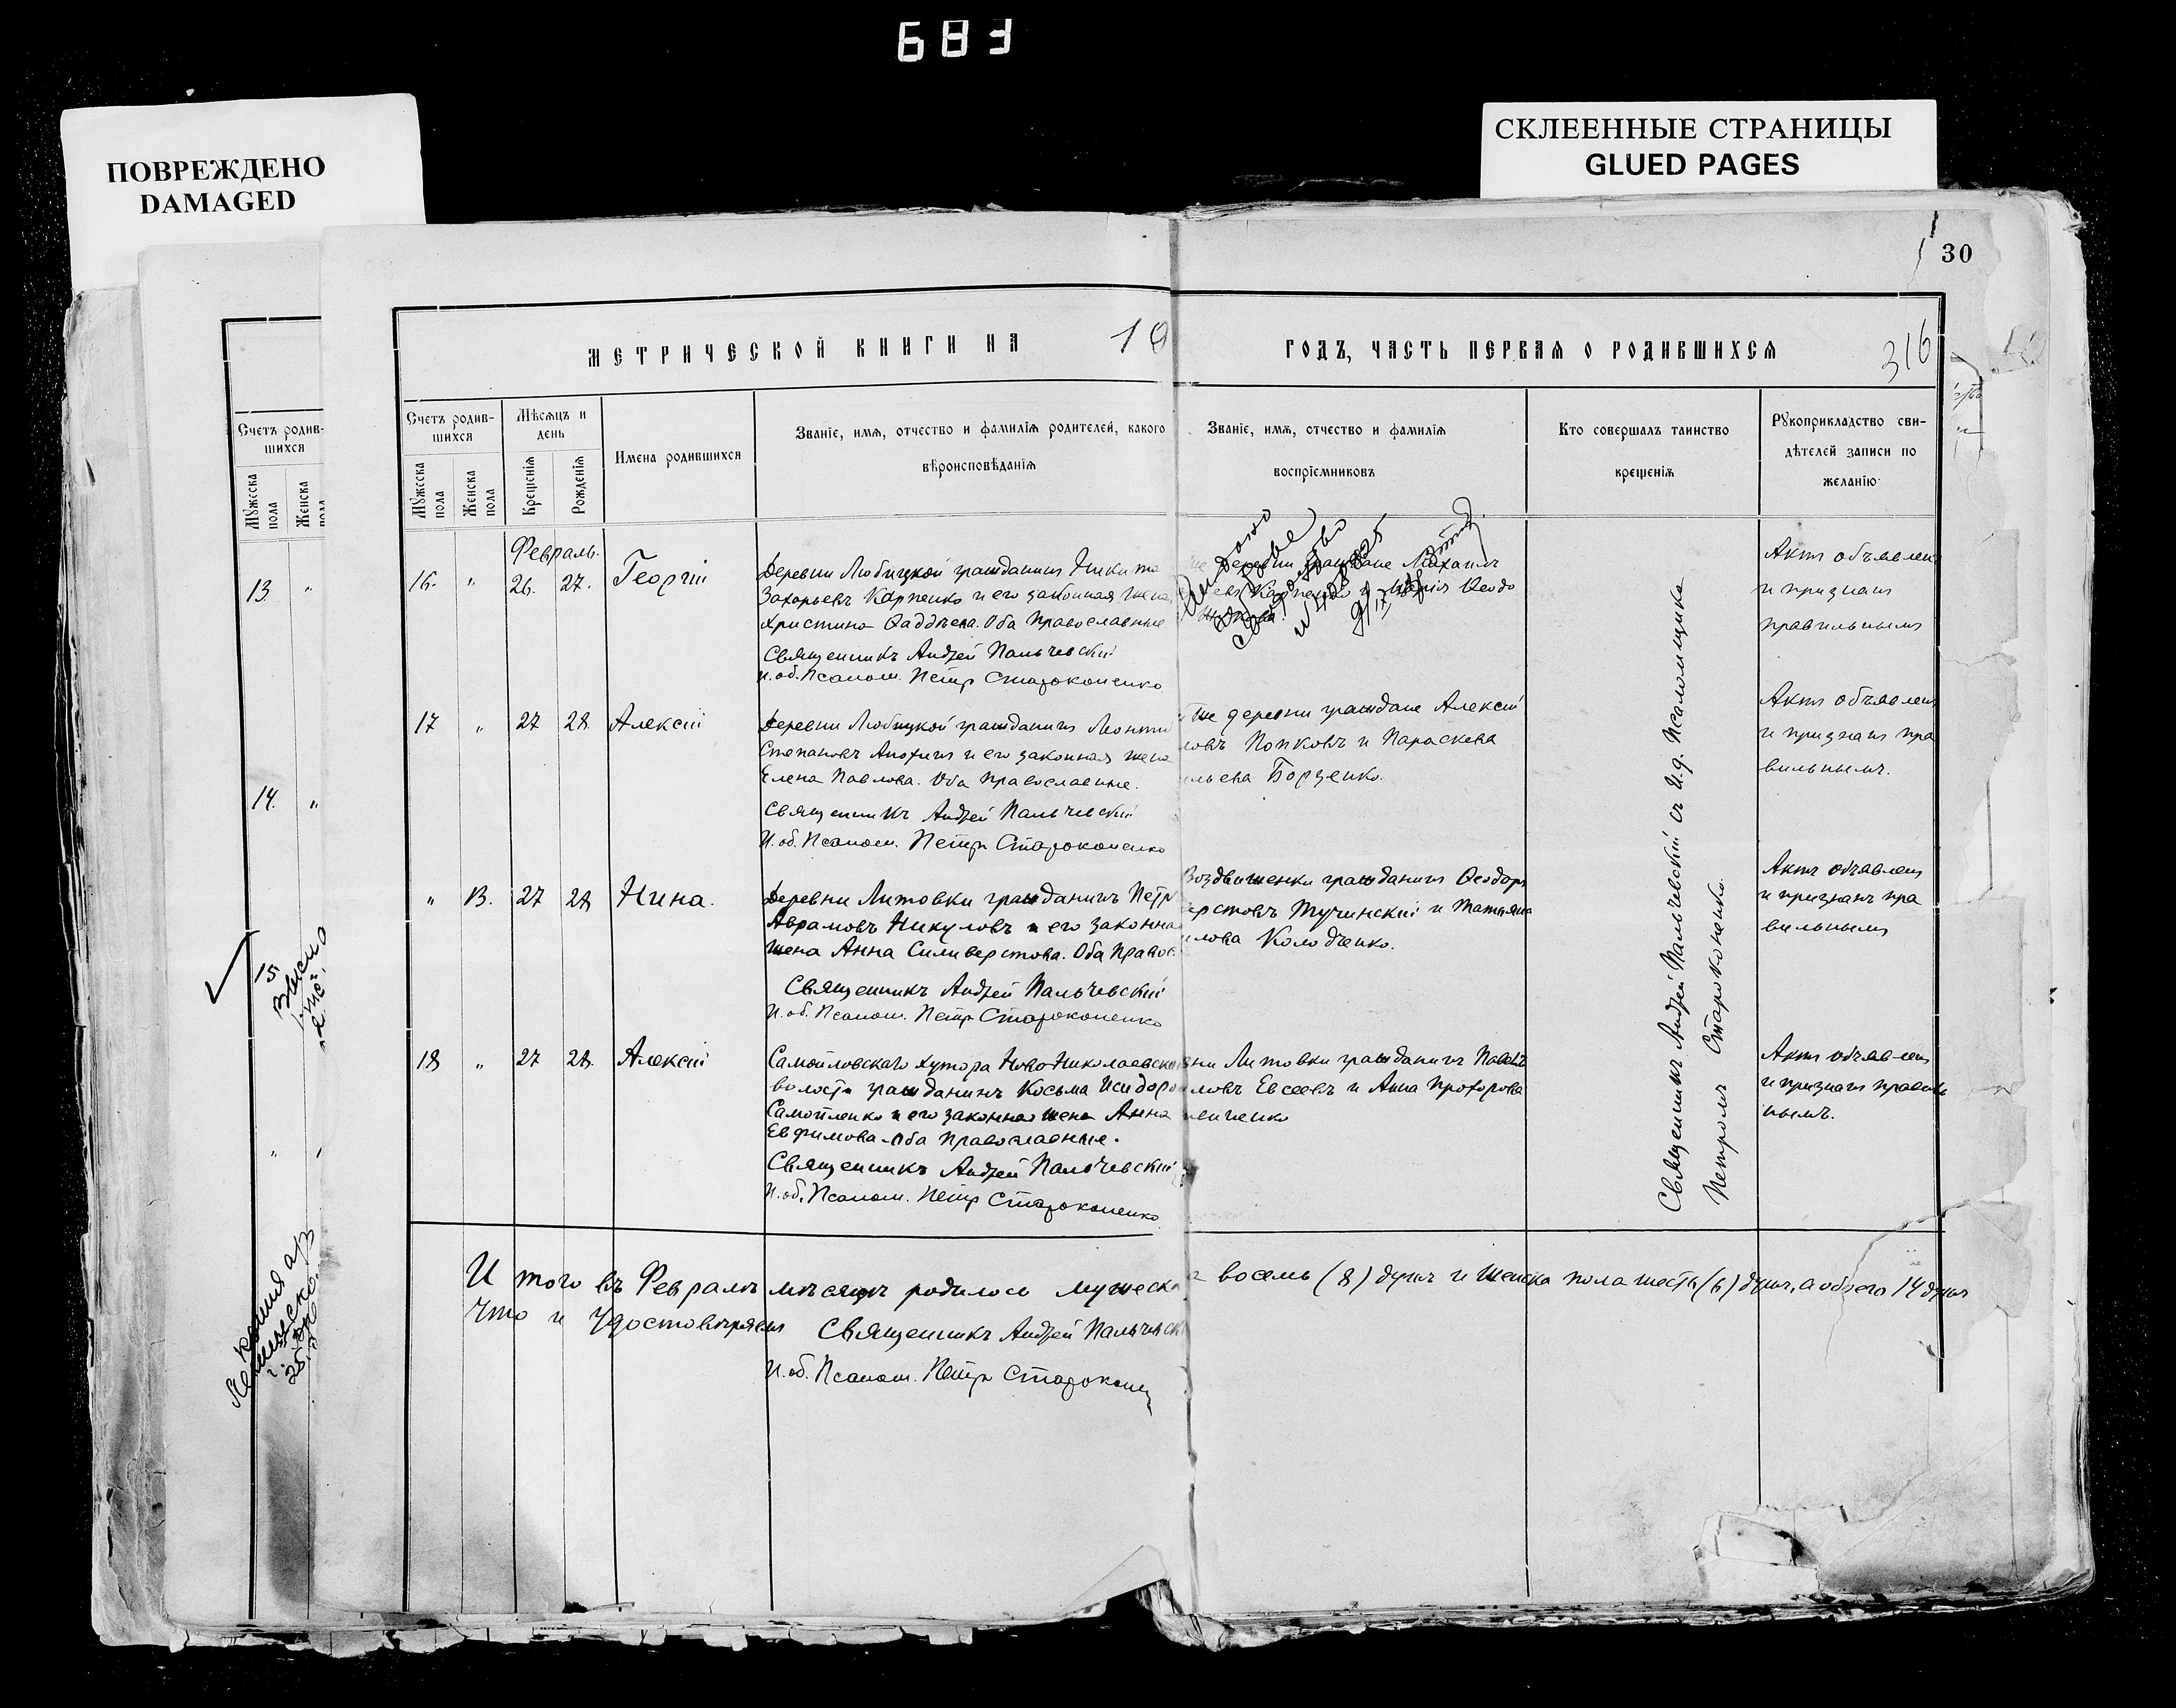 683
ПОВРЕЖДЕНО
DAMAGED
СКЛЕЕННЫЕ СТРАНИЦЫ
GLUED PAGES
30
МЕТРИЧЕСКОЙ КНИГИ НА 19
ГОДЪ, ЧАСТЬ ПЕРВАЯ О РОДИВШИХСЯ
316
Счетъ родив-
шихся
Мужеска пола
Женска пола
13. "
14. "
15
" "
Счетъ родив-
шихся
Мужеска пола
Женска пола
Мѣсяцъ и
день
Крещенія
Рожденія
Имена родившихся
Званіе, имя, отчество и фамилія родителей, какого
вѣроисповѣданія
Званіе, имя, отчество и фамилія
воспріемниковъ
Кто совершалъ таинство
крещенія
Рукоприкладство сви-
дѣтелей записи по
желанію
Февраль.
16. " 26. 27. Георгій
Деревни Любицкой гражданинъ Никита
Захарьевъ Карпенко и его законная жена
Христина Фаддѣева. Оба Православные
Священникъ Андрей Пальчевскій
И. об. Псалом. Петръ Староконенко
же деревни граждане Михаилъ
Карпенко и Марія Ѳеодо
Актъ объявленъ
и признанъ
правильнымъ
17 " 27 28 Алексій
Деревни Любицкой гражданинъ Леонтій
Степановъ Анохинъ и его законная жена
Елена Павлова. Оба Православные.
Священникъ Андрей Пальчевскій
И. об. Псалом. Петръ Староконенко
же деревни граждане Алексій
ловъ Попковъ и Параскева
ильева Борзенко.
Актъ объявленъ
и признанъ пра
вильнымъ.
" 13. 27 28 Нина.
Деревни Литовки гражданинъ Петръ
Аврамовъ Никуловъ и его законная
жена Анна Силиверстова. Оба Правос.
Священникъ Андрей Пальчевскій
И. об. Псалом. Петръ Староконенко
Воздвиженки гражданинъ Ѳеодоръ
ерстовъ Тучинскій и Татьяна
илова Колодченко.
Актъ объявленъ
и признанъ пра
вильнымъ
18 " 27 28. Алексій
Самойловскаго хутора Ново-Николаевской
волости гражданинъ Косьма Исидоро
Самойленко и его законная жена Анна
Евфимова. Оба Православные.
Священникъ Андрей Пальчевскій
И. об. Псалом. Петръ Староконенко
вни Литовки гражданинъ Павелъ
иловъ Евсеевъ и Анна Прохорова
ниченко
Актъ объявленъ
и признанъ правиль
нымъ.
Священникъ Андрей Пальчевскій съ И. д. Псаломщика
Петромъ Староконенко.
И того въ Февралѣ мѣсяцѣ родилось мужеска
восемь (8) душъ и женска пола шесть (6) душъ, а обоего 14 душъ
Что и удостовѣряемъ Священникъ Андрей Пальчевск
И. об. Псалом. Петръ Староконен